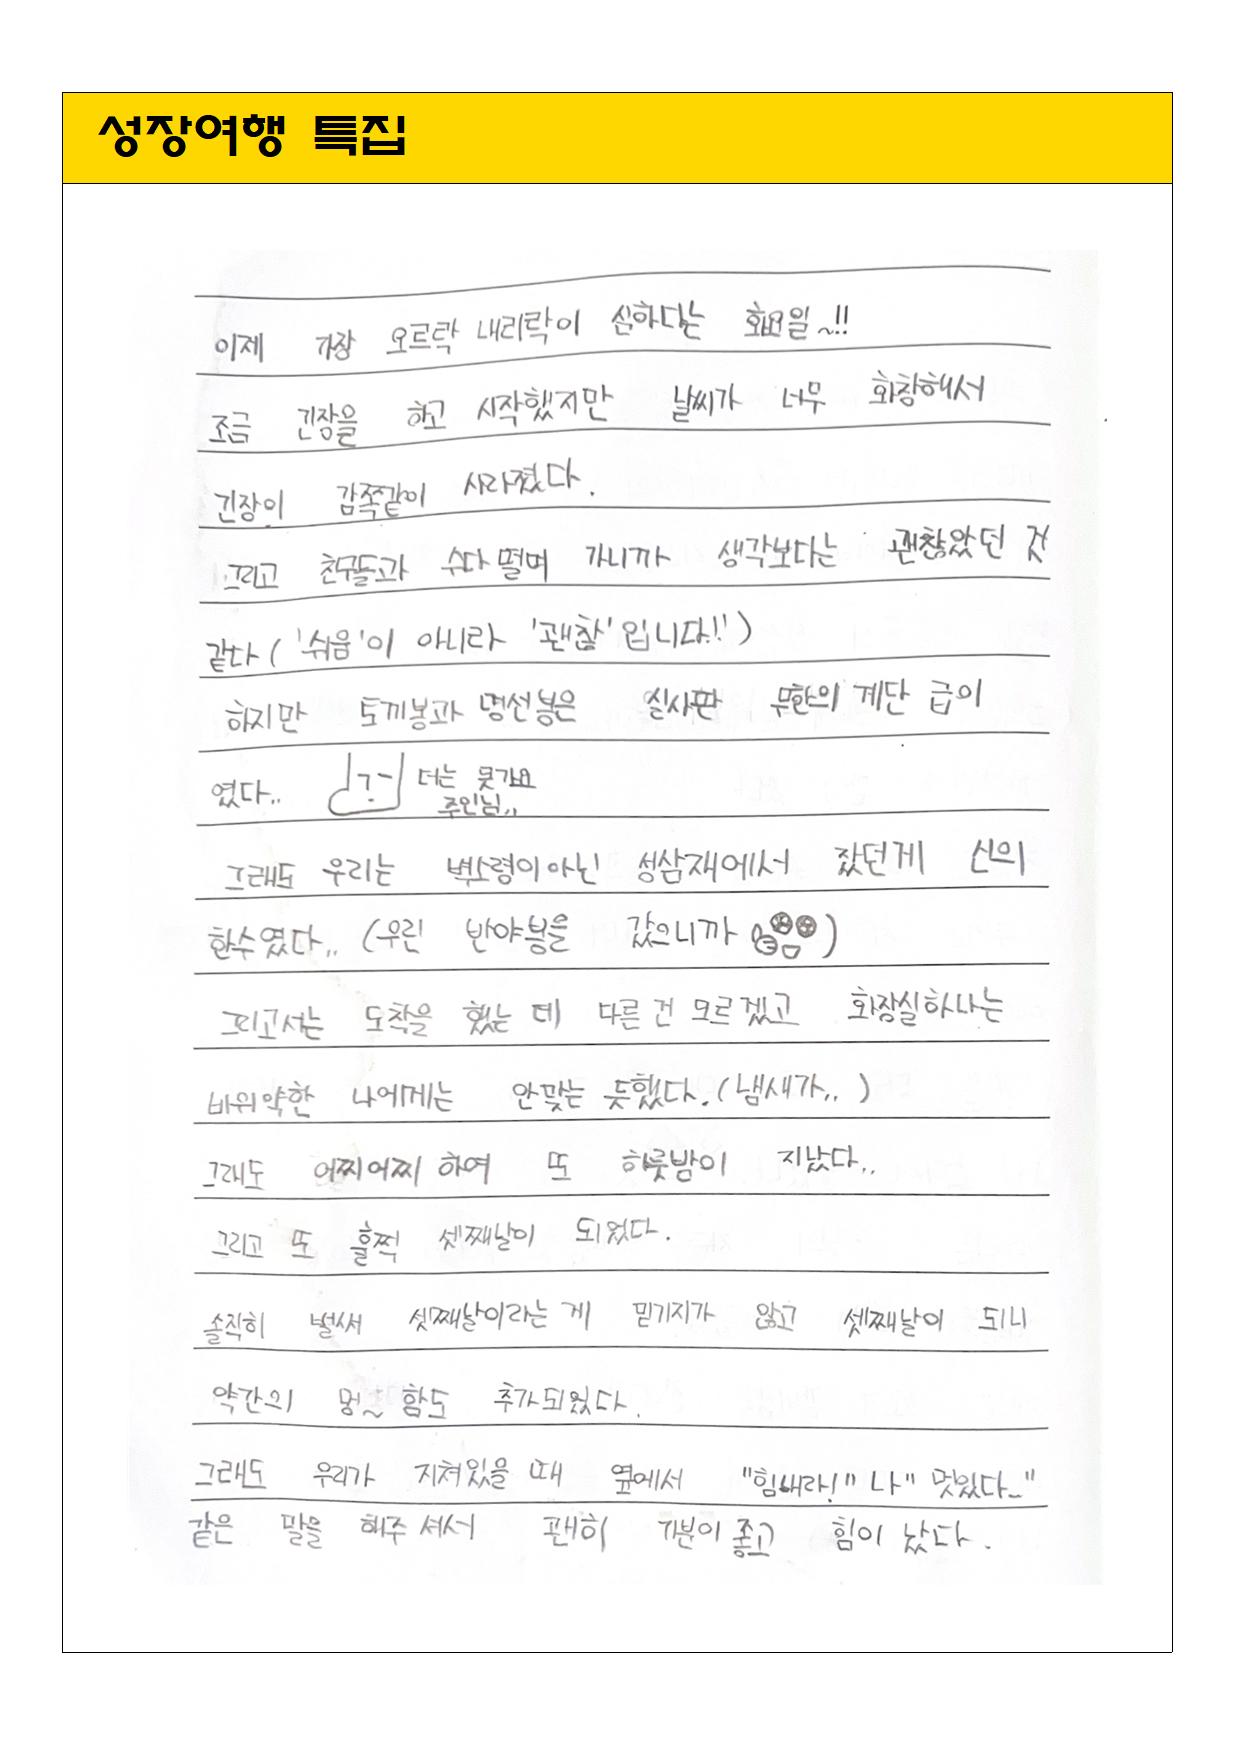 성장여행 특집
이제 가장 오르락 내리락이 심하다는 화요일~!!
조금 긴장을 하고 시작했지만 날씨가 너무 화창해서
긴장이 감쪽같이 사라졌다.
그리고 친구들과 수다 떨며 가니까 생각보다는 괜찮았던 것
같다 ('쉬움'이 아니라 '괜찮'입니다!!)
하지만 토끼봉과 명선봉은 실사판 무한의 계단 급이
였다..
더는 못가요
주인님..
그래도 우리는 벽소령이 아닌 성삼재에서 잤던게 신의
한수였다.. (우린 반야봉을 갔으니까 )
그리고서는 도착을 했는 데 다른 건 모르겠고 화장실하나는
비위약한 나에게는 안맞는 듯했다. (냄새가.. )
그래도 어찌어찌 하여 또 하룻밤이 지났다..
그리고 또 훌쩍 셋째날이 되었다.
솔직히 벌써 셋째날이라는 게 믿기지가 않고 셋째날이 되니
약간의 멍~함도 추가되었다.
그래도 우리가 지쳐있을 때 옆에서 "힘내라!" 나 "멋있다~"
같은 말을 해주셔서 괜히 기분이 좋고 힘이 났다.